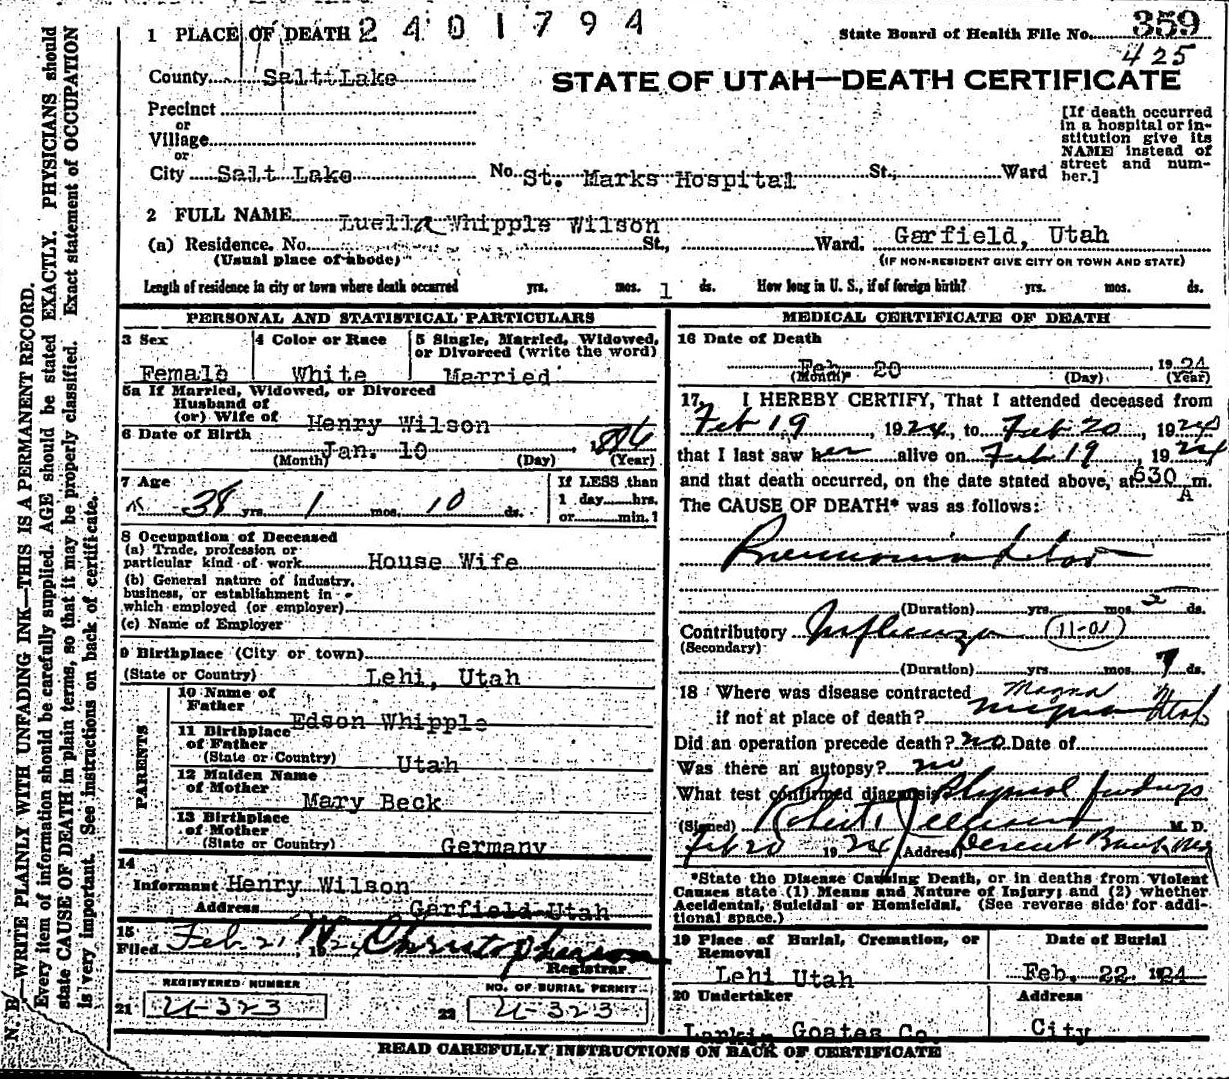 2 4 0 1 7 9 4
State Board of Health File No. 359
425
1 PLACE OF DEATH
County Salt Lake
STATE OF UTAH—DEATH CERTIFICATE
Precinct
or
Village
or
City Salt Lake No. St. Marks Hospital St., Ward
[If death occurred
in a hospital or in-
stitution give its
NAME instead of
street and num-
ber.]
2 FULL NAME Luella Whipple Wilson
(a) Residence. No. St., Ward. Garfield, Utah
(Usual place of abode) (IF NON-RESIDENT GIVE CITY OR TOWN AND STATE)
Length of residence in city or town where death occurred yrs. mos. 1 ds. How long in U. S., if of foreign birth? yrs. mos. ds.
PERSONAL AND STATISTICAL PARTICULARS
3 Sex
Female
4 Color or Race
White
5 Single, Married, Widowed,
or Divorced (write the word)
Married
5a If Married, Widowed, or Divorced
Husband of
(or) Wife of Henry Wilson
6 Date of Birth
Jan. 10
(Month) (Day) (Year)
7 Age
38 yrs. 1 mos. 10 ds.
If LESS than
1 day hrs.
or min.
8 Occupation of Deceased
(a) Trade, profession or
particular kind of work House Wife
(b) General nature of industry,
business, or establishment in
which employed (or employer)
(c) Name of Employer
9 Birthplace (City or town)
(State or Country) Lehi, Utah
PARENTS
10 Name of
Father Edson Whipple
11 Birthplace
of Father
(State or Country) Utah
12 Maiden Name
of Mother Mary Beck
13 Birthplace
of Mother
(State or Country) Germany
14
Informant Henry Wilson
Address Garfield Utah
15
Filed Feb 21, 1924 Christopherson
Registrar
REGISTERED NUMBER
21 U-323
NO. OF BURIAL PERMIT
22 U-323
MEDICAL CERTIFICATE OF DEATH
16 Date of Death
Feb. 20 1924
(Month) (Day) (Year)
17 I HEREBY CERTIFY, That I attended deceased from
Feb 19, 1924, to Feb 20, 1924
that I last saw her alive on Feb 19, 1924
and that death occurred, on the date stated above, at 630 A m.
The CAUSE OF DEATH* was as follows:
Pneumonia lobar
(Duration) yrs. mos. 2 ds.
Contributory Influenza 11-01
(Secondary)
(Duration) yrs. mos. 7 ds.
18 Where was disease contracted Magna
if not at place of death? Magna Utah
Did an operation precede death? no Date of
Was there an autopsy? no
What test confirmed diagnosis? Physical findings
(Signed) Robert M. D.
Feb 20 1924 (Address) Deseret Bank Bldg
*State the Disease Causing Death, or in deaths from Violent
Causes state (1) Means and Nature of Injury; and (2) whether
Accidental, Suicidal or Homicidal. (See reverse side for addi-
tional space.)
19 Place of Burial, Cremation, or
Removal
Lehi Utah
Date of Burial
Feb. 22 1924
20 Undertaker
Larkin Goates Co.
Address
City
READ CAREFULLY INSTRUCTIONS ON BACK OF CERTIFICATE
N. B.—WRITE PLAINLY WITH UNFADING INK—THIS IS A PERMANENT RECORD.
Every item of information should be carefully supplied. AGE should be stated EXACTLY. PHYSICIANS should
state CAUSE OF DEATH in plain terms, so that it may be properly classified. Exact statement of OCCUPATION
is very important. See instructions on back of certificate.